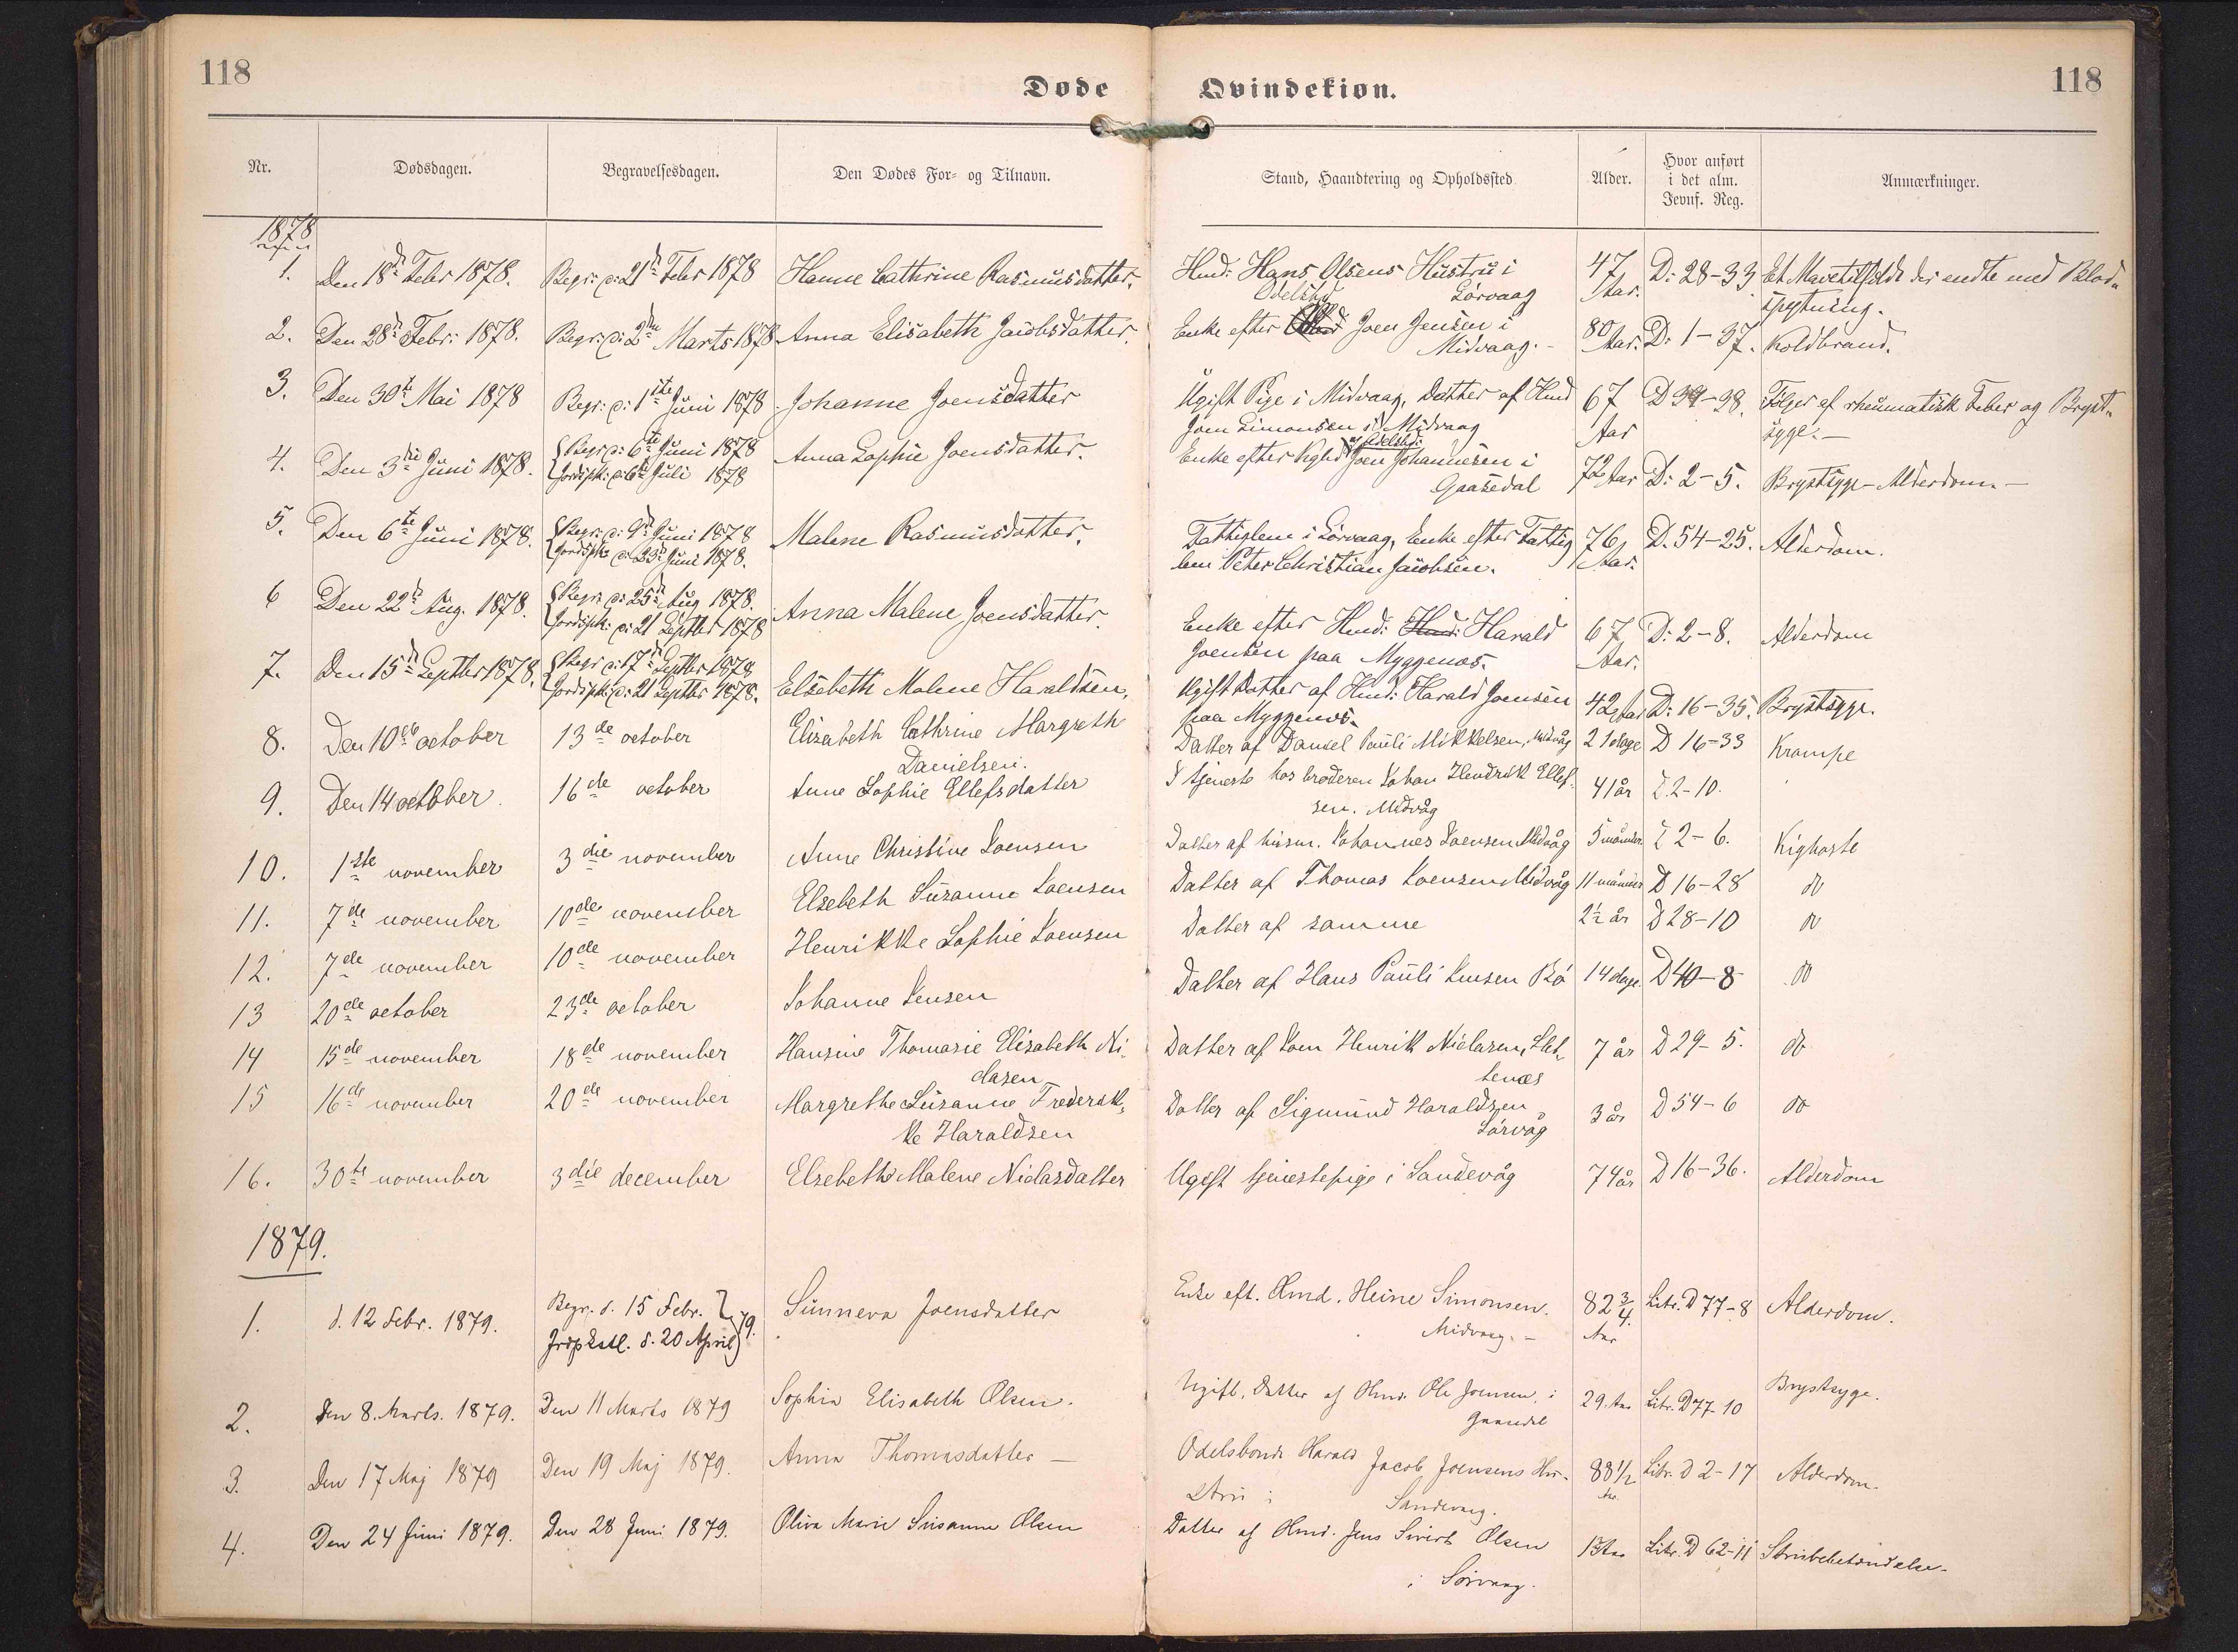 118
Døde
Qvindekiøn.
118
Nr.
Dødsdagen.
Begravelsesdagen.
Den Dødes For- og Tilnavn.
Stand, Haandtering og Opholdssted
Alder.
Hvor anført
i det alm.
Jevnf. Reg.
Anmærkninger.
1878
1. Den 18d Febr 1878. Begr: d: 21d Febr 1878 Hanne Cathrine Rasmusdatter. Hmd: Hans Olsens Hustru i 47 D: 28-33 Et Mavetilfælde der endte med Blod-
Sørvaag Aar. spytning.
2. Den 28d Febr: 1878. Begr: d: 2den Marts 1878 Anna Elisabeth Jacobsdatter. Enke efter Odelsbd Joen Jensen i 80 Aar. D: 1-37. Koldbrand.
Midvaag.-
3. Den 30te Mai 1878 Begr: d: 1ste Juni 1878 Johanne Joensdatter Ugift Pige i Midvaag, Datter af Hmd 67 D 39-98. Følger af rheumatisk Feber og Bryst-
Joen Simonsen i Midvaag Aar syge.-
4. Den 3die Juni 1878. Begr: d: 6te Juni 1878 Anna Sophie Joensdatter. Enke efter Kgbd og Odelsbd: Joen Johannesen i 72 Aar D: 2-5. Brystsyge-Alderdom.-
Jordspk: d: 6te Juli 1878 Gaasedal
5. Den 6te Juni 1878. Begr: d: 9d Juni 1878 Malene Rasmusdatter. Fattiglem i Sørvaag, Enke efter Fattig 76 D. 54-25. Alderdom.
Jordspk d 23d Juni 1878. lem Peter Christian Jacobsen. Aar.
6 Den 22d Aug. 1878. Begr: d: 25d Aug 1878. Anna Malene Joensdatter. Enke efter Hmd: Hmd: Harald 67 D: 2-8. Alderdom
Jordspk: d: 21 Septbr 1878 Joensen paa Myggenæs. Aar.
7. Den 15d Septbr 1878. Begr d: 17d Septbr 1878 Elsebeth Malene Haraldsen. Ugift Datter af Hmd: Harald Joensen 42 Aar D: 16-35. Brystsyge.
Jordspk: d: 21 Septbr 1878. paa Myggenæs.
8. Den 10de october 13de october Elisabeth Cathrine Margreth Datter af Daniel Pauli Mikkelsen, Midvåg 21 dage D 16-33 Krampe
Danielsen.
9. Den 14 october. 16de october Anne Sophie Ellefsdatter I tjeneste hos broderen Johan Hendrik Ellef- 41 år D. 2-10.
sen. Midvåg
10. 1ste november 3die november Anne Christine Joensen Datter af husm. Johannes Joensen Midvåg 5 måneder D 2-6. Kighoste
11. 7de november 10de november Elsebeth Susanne Joensen Datter af Thomas Joensen Midvåg 11 måneder D 16-28 do
12. 7de november 10de november Henrikke Sophie Joensen Datter af samme 2½ år D 28-10 do
13 20de october 23de october Johanne Jensen Datter af Hans Pauli Jensen Bö 14 dage. D 40-8 do
14 15de november 18de november Hansine Thomasie Elisabeth Ni- Datter af Joen Henrik Niclasen, Slet- 7 år D 29-5. do
clasen tenæs
15 16de november 20de november Margrethe Susanne Frederik- Datter af Sigmund Haraldsen 3 år D 54-6 do
ke Haraldsen Sørvåg
16. 30te november 3die december Elsebeth Malene Niclasdatter Ugift tjenestepige i Sandevåg 74 år D 16-36. Alderdom
1879.
1. d. 12 Febr. 1879. Begr. d. 15 Febr. 79. Sunneva Joensdatter Enke eft. Hmd. Heine Simonsen. 82 3/4 Litr. D 77-8 Alderdom.
Jrdpkstl. d. 20 April Midvaag.- Aar
2. Den 8. Marts. 1879. Den 11 Marts 1879 Sophia Elisabeth Olsen. Ugift, Datter af Hmd. Ole Joensen, i 29 Aar Litr. D 77-10 Brystsyge.
Gaasedal
3. Den 17 Maj 1879 Den 19 Maj 1879. Anna Thomasdatter - Odelsbonde Harald Jacob Joensens Hu- 88 1/2 Litr. D 2-17 Alderdom.
stru i Sandevaag. Aar
4. Den 24 Juni 1879. Den 28 Juni 1879. Oliva Marie Susanne Olsen Datter af Hmd. Jens Sivert Olsen 13 Aar Litr. D 62-11 Strubebetændelse.
i Sørvaag.